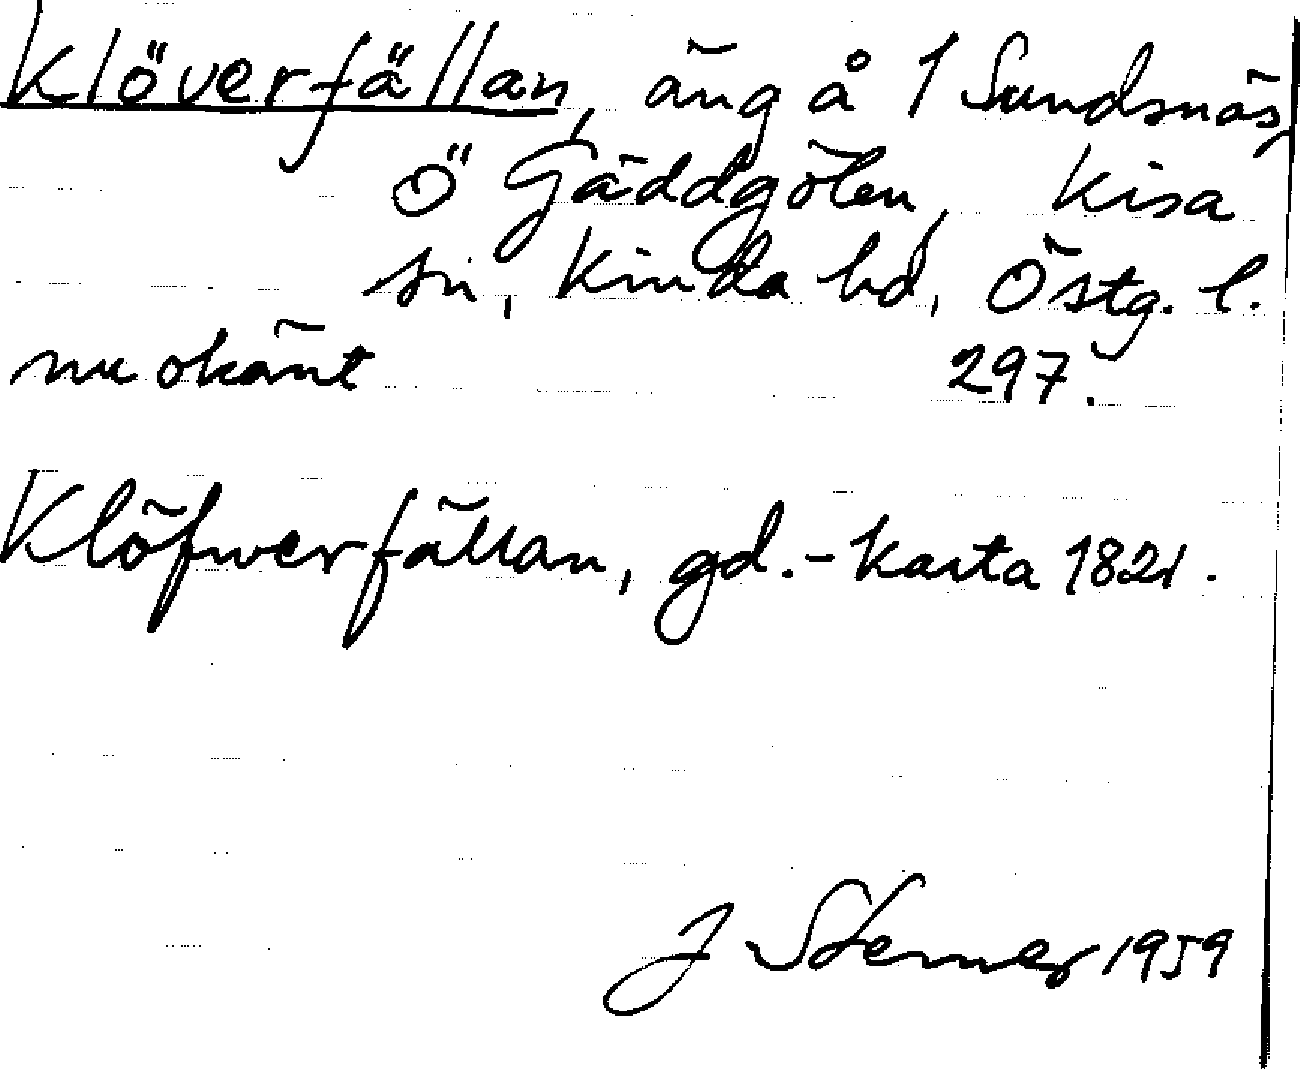 Klöverfällan, äng å 1 Sundsnäs,
Ö Gäddgölen, Kisa
sn, Kinda hd, Östg. l.
nu okänt 297.
Klöfwerfällan, gd.-karta 1821.
J Sterner 1959